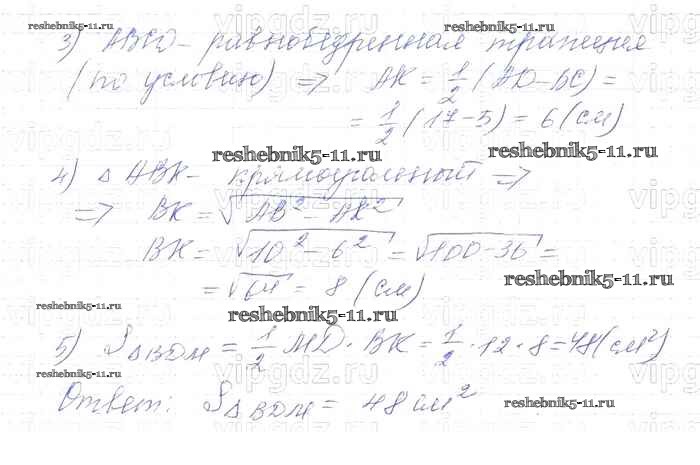 reshebnik5-11.ru reshebnik5-11.ru
3) ABCD - равнобедренная трапеция
(по условию) => AK = 1/2 (AD - BC) =
= 1/2 (17 - 5) = 6 (см)
reshebnik5-11.ru reshebnik5-11.ru
4) △ ABK - прямоугольный =>
=> BK = √(AB² - AK²)
BK = √(10² - 6²) = √(100 - 36) =
reshebnik5-11.ru
= √64 = 8 (см)
reshebnik5-11.ru
reshebnik5-11.ru
5) S△BDM = 1/2 MD · BK = 1/2 · 12 · 8 = 48 (см²)
reshebnik5-11.ru
Ответ: S△BDM = 48 см²
reshebnik5-11.ru